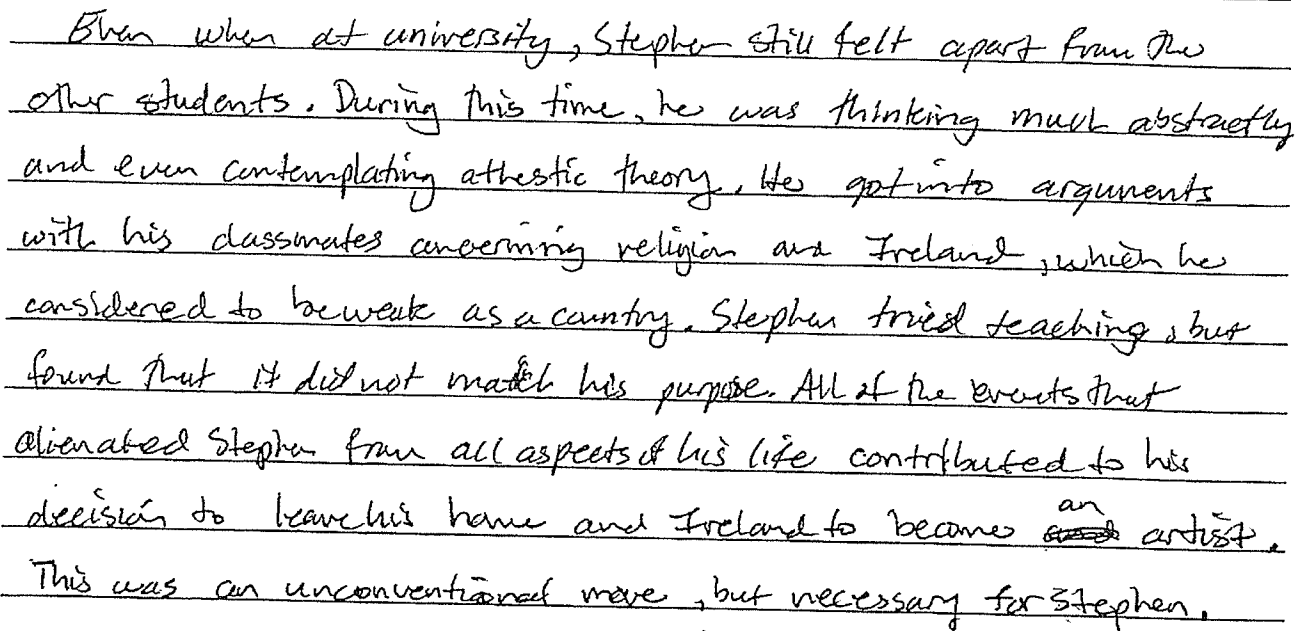 Even when at university, Stephen still felt apart from the
other students. During this time, he was thinking much abstractly
and even contemplating athestic theory. He got into arguments
with his classmates concerning religion and Ireland, which he
considered to be weak as a country. Stephen tried teaching, but
found that it did not match his purpose. All of the events that
alienated Stephen from all aspects of his life contributed to his
decision to leave his home and Ireland to become an artist.
This was an unconventional move, but necessary for Stephen.